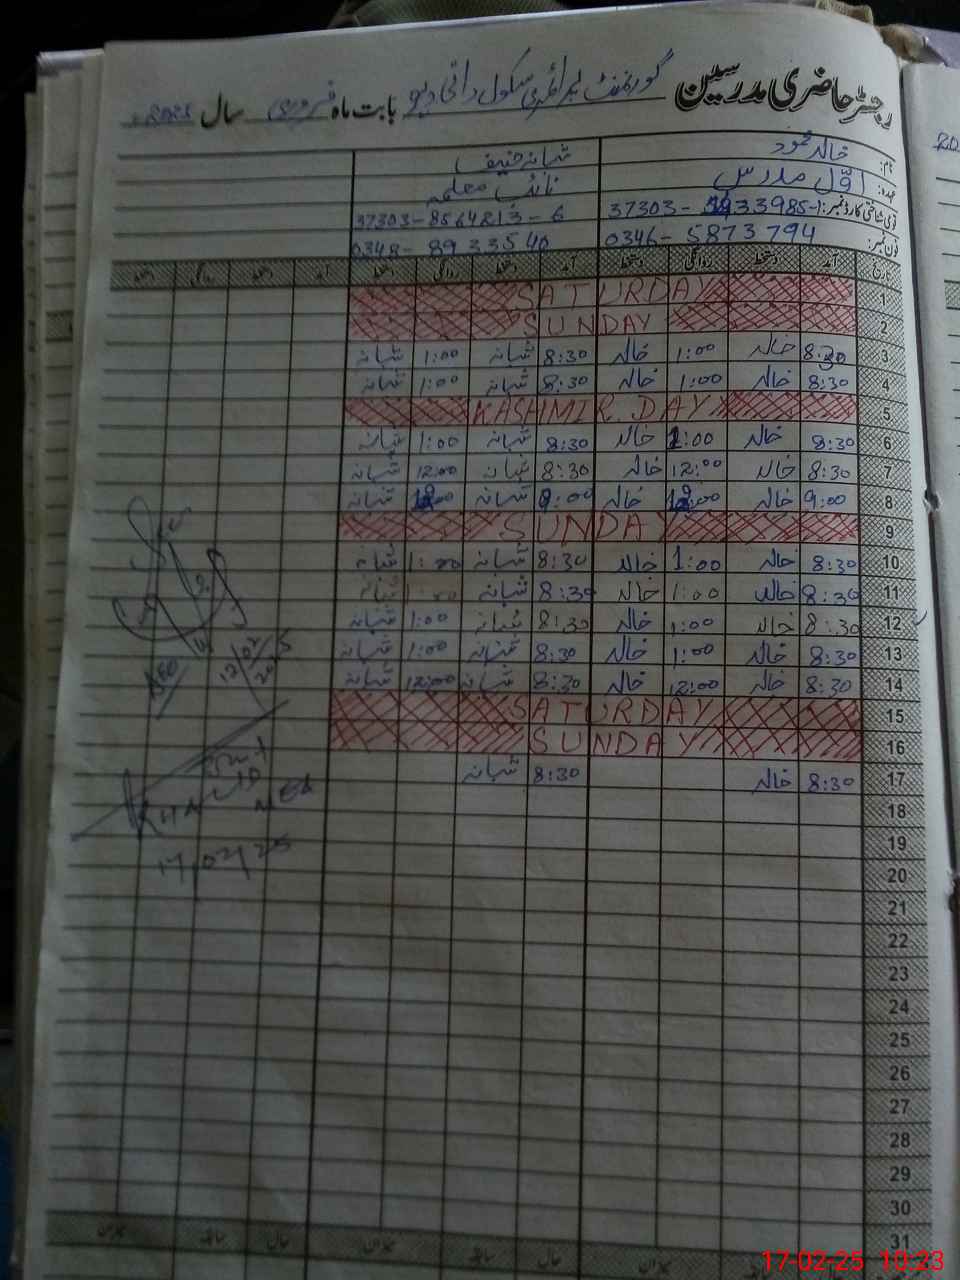 رجسٹر حاضری مدرسین گورنمنٹ پرائمری سکول بابت ماہ فروری سال 2025
نام: خالد محمود شبانہ حنیف
عہدہ: اوّل مدرس نائب معلمہ
قومی شناختی کارڈ نمبر: 37303-8564213-6
فون نمبر: 0346-5873794 0348-8933540
تاریخ آمد دستخط روانگی دستخط آمد دستخط روانگی دستخط آمد دستخط روانگی دستخط
1 SATURDAY
2 SUNDAY
3 8:30 خالد 1:00 خالد 8:30 شبانہ 1:00 شبانہ
4 8:30 خالد 1:00 خالد 8:30 شبانہ 1:00 شبانہ
5 KASHMIR DAY
6 8:30 خالد 1:00 خالد 8:30 شبانہ 1:00 شبانہ
7 8:30 خالد 12:00 خالد 8:30 شبانہ 12:00 شبانہ
8 9:00 خالد خالد 9:00 شبانہ شبانہ
9 SUNDAY
10 8:30 خالد 1:00 خالد 8:30 شبانہ 1:00 شبانہ
11 8:30 خالد 1:00 خالد 8:30 شبانہ 1:00 شبانہ
12 8:30 خالد 1:00 خالد 8:30 شبانہ 1:00 شبانہ
13 8:30 خالد 1:00 خالد 8:30 شبانہ 1:00 شبانہ
14 8:30 خالد 12:00 خالد 8:30 شبانہ 12:00 شبانہ
12/02/2025
15 SATURDAY
16 SUNDAY
17 8:30 خالد 8:30 شبانہ
MEA
18
19
17/02/25
20
21
22
23
24
25
26
27
28
29
30
31
حال سابقہ میزان حال سابقہ میزان
17-02-25 10:23